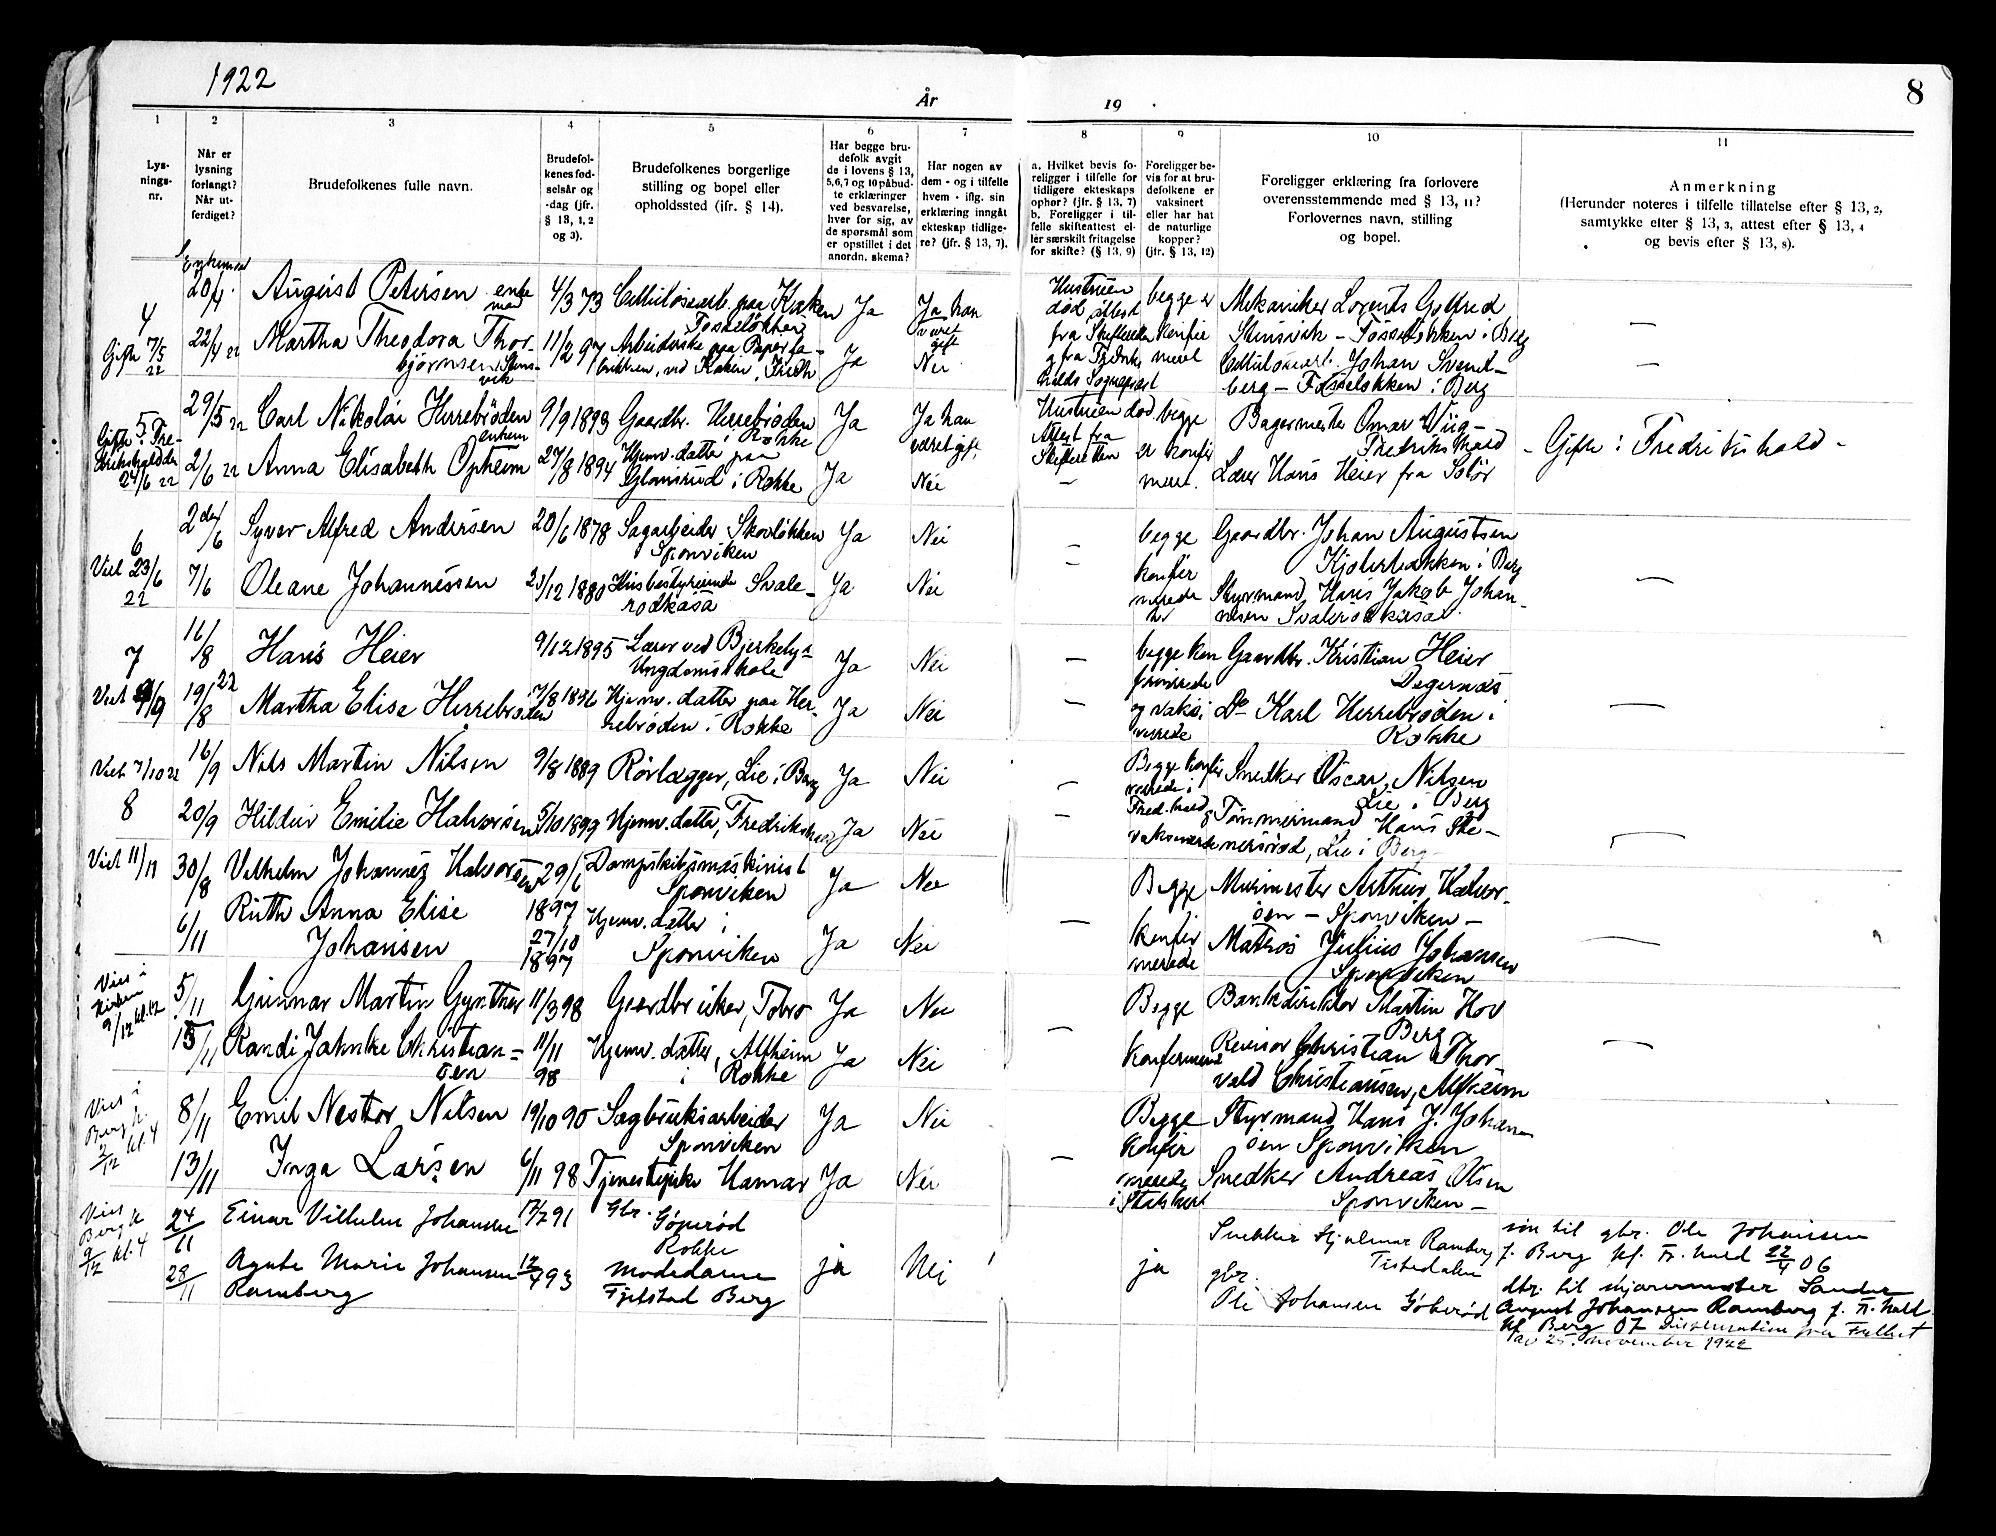 1922
År
19
8
1
2
3
4
5
6
7
8
9
10
11
Lys-
nings-
nr.
Når er
lysning
forlangt?
Når ut-
ferdiget?
Brudefolkenes fulle navn.
Brudefol-
kenes fød-
selsår og
-dag (jfr.
§ 13, 1, 2
og 3).
Brudefolkenes borgerlige
stilling og bopel eller
opholdssted (jfr. § 14).
Har begge bru-
defolk avgit
de i lovens § 13,
5,6,7 og 10 påbud-
te erklæringer
ved besvarelse,
hver for sig, av
de spørsmål som
er opstillet i det
anordn. skema?
Har nogen av
dem - og i tilfelle
hvem - iflg. sin
erklæring inngått
ekteskap tidlige-
re? (jfr. § 13, 7).
a. Hvilket bevis fo-
religger i tilfelle for
tidligere ekteskaps
ophør? (jfr. § 13, 7)
b. Foreligger i til-
felle skifteattest el-
ler særskilt fritagelse
for skifte? (§ 13, 9)
Foreligger be-
vis for at bru-
defolkene er
vaksinert
eller har hat
de naturlige
kopper?
(jfr. § 13, 12)
Foreligger erklæring fra forlovere
overensstemmende med § 13, 11?
Forlovernes navn, stilling
og bopel.
Anmerkning
(Herunder noteres i tilfelle tillatelse efter § 13, 2,
samtykke efter § 13, 3, attest efter § 13, 4
og bevis efter § 13, 8).
4
Gift 7/5
22
20/4
August Petersen enke
mand
4/3 73
Celluloscarb. paa Kaken
Fosseløkken
Ja
Ja han
været
gift
Hustruen
død attest
fra Skifteretten
begge er
konfir
meret
Mekaniker Lorents Gotfred
Stensvik - Fosseløkken i Berg
22/4 22
Martha Theodora Thor-
bjørnsen Stens-
vik
11/2 97
Arbeiderske paa Papirfa-
brikken, ved Kaken, Fredh
Ja
Nei
Cellulosearb. Johan Svend-
berg - Fosseløkken i Berg
5
Gift i Fre-
drikshald de
24/6 22
29/5 22
Carl Nikolai Herrebrøden
enkem
9/9 1893
Gaardbr. Herrebrøden
Rokke
Ja
Ja han
været gift
Hustruen død
Attest fra
Skifteretten
begge
er konfir
meret.
Bagermester Omar Wiig -
Fredrikshald
- Gift i Fredrikshald -
2/6 22
Anna Elisabeth Opheim
27/8 1894
Hjemv. datter paa
Glomsrud i Rokke
Ja
Nei
Lærer Hans Heier fra Solør
6
Viet 23/6
22
2den/6
Syver Alfred Andersen
20/6 1878
Sagarbeider Skovløkken
Sponviken
Ja
Nei
begge
konfir
merede
Gaardbr. Johan Augustsen
Kjølerbakken i Berg
7/6
Oleane Johannessen
/12 1880
Husbestyrerinde Svale-
rødkasa
Ja
Nei
Styrmand Hans Jakob Johan-
nesen Svalerødkasa
7
Viet 9/9
16/8
Hans Heier
9/12 1895
Lærer ved Bjerkely
Ungdomsskole
Ja
Nei
begge kon
firmerede
Gaardbr. Kristian Heier
Degernes
19/8 22
Martha Elise Herrebrøden
7/8 1896
Hjemv. datter paa Her-
rebrøden i Rokke
Ja
Nei
og vaksi
nerede
Do Karl Herrebrøden i
Rokke
Viet 7/10 22
8
16/9
Nils Martin Nilsen
9/8 1889
Rørlægger, Lie i Berg
Ja
Nei
Begge konfir
merede i
Fred.hald
Snedker Oscar Nilsen
Lie i Berg
20/9
Hildur Emilie Halvorsen
5/10 1899
Hjemv. datter, Fredrikshald
Ja
Nei
Tømmermand Hans Ste-
nersrød, Lie i Berg
Viet 11/11
30/8
Vilhelm Johannes Halvorsen
29/6
1897
Dampskibsmaskinist
Sponviken
Ja
Nei
Begge
konfir
merede
Murmester Arthur Halvor-
sen - Sponviken -
6/11
Ruth Anna Elise
Johansen
27/10
1897
Hjemv. datter i
Sponviken
Ja
Nei
Matros Julius Johansen
Sponviken
Vies i
Kirken
9/12 kl. 12
5/11
Gunnar Martin Gynther
11/3 98
Gaardbruker, Tobro
Ja
Nei
Begge
konfirmeret
Bankdirektør Martin Hov
Berg
15/11
Randi Jahnke Christian-
sen
11/11
98
Hjemv. datter, Alfheim
i Rokke
Ja
Nei
Revisor Christian Thor-
vald Christiansen, Alfheim
Vies i
Berg k.
2/12 kl. 4
8/11
Emil Nestor Nilsen
19/10 90
Sagbruksarbeider
Sponviken
Ja
Nei
Begge
konfir
merede
i Statskirk
Styrmand Hans J. Johan-
sen Sponviken
13/11
Inga Larsen
6/11 98
Tjenestepike Hamar
Ja
Nei
Snedker Andreas Olsen
Sponviken -
Vies
Berg k
9/12 kl. 4
24/11
Einar Vilhelm Johansen
17/2 91
Gbr.
Göperød
Rokke
ja
Nei
ja
Snekker Hjalmar Ramberg
Tistedalen
søn til gbr. Ole Johansen
f. Berg kf. Fr.hald 22/4 06
28/11
Agnte Marie Johansen
Ramberg
12/4 93
Modedame
Fjelstad Berg
gbr.
Ole Johansen Göberød
dtr. til skjæremester Sander
August Johansen Ramberg f. Fr.hald
kf Berg 07 Dispensation fra Fylket
av 25. november 1922